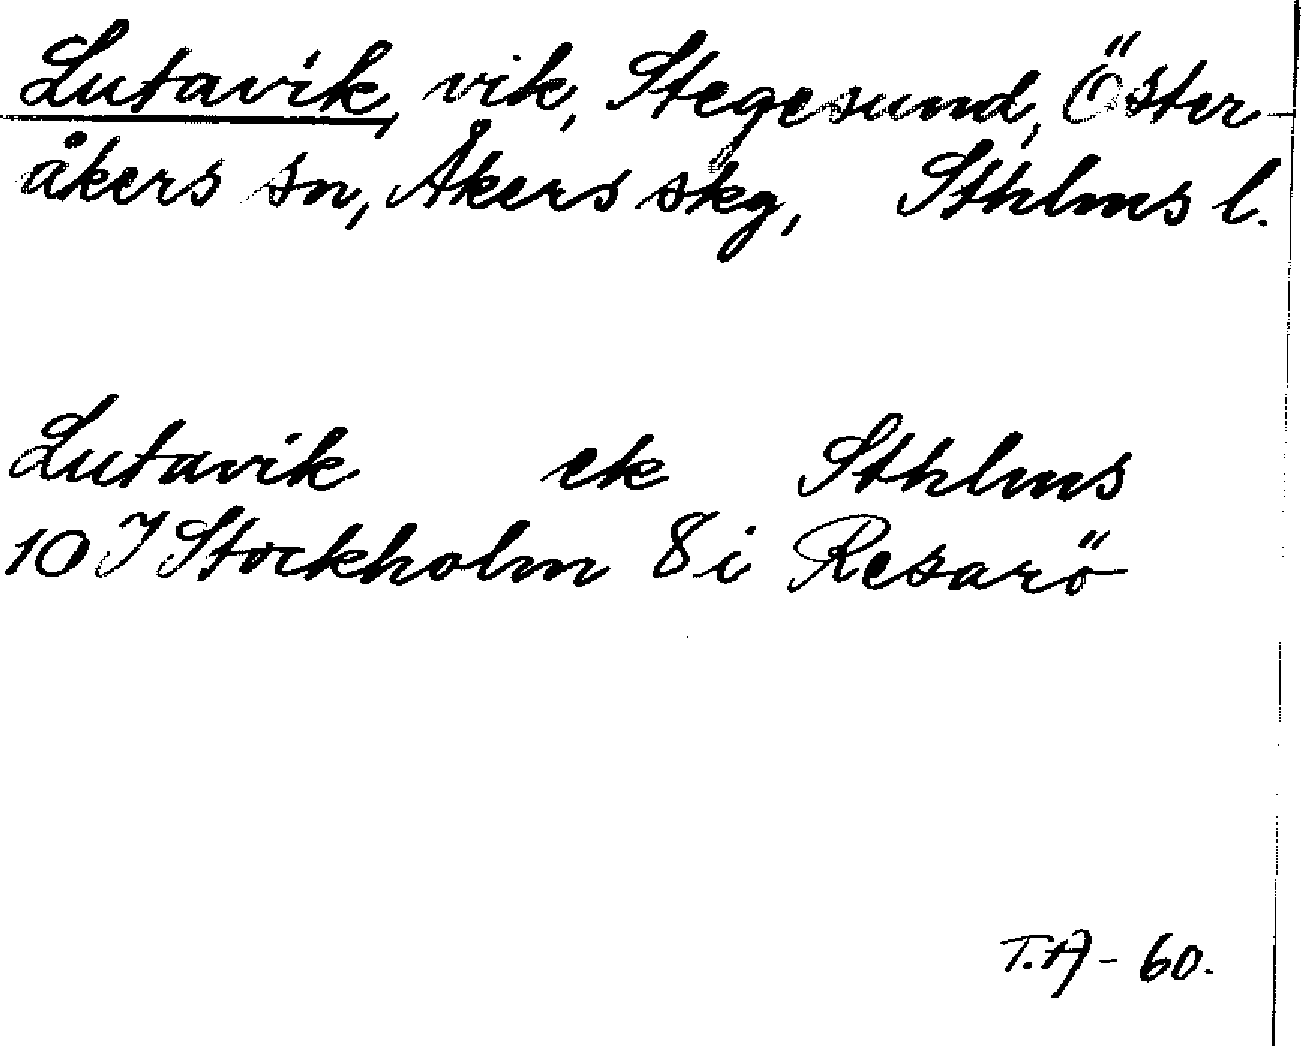 Lutavik, vik, Stegesund, Öster-
åkers sn, Åkers skg, Sthlms l.
Lutavik ek Sthlms
10 I Stockholm 8 i Resarö
T.A - 60.